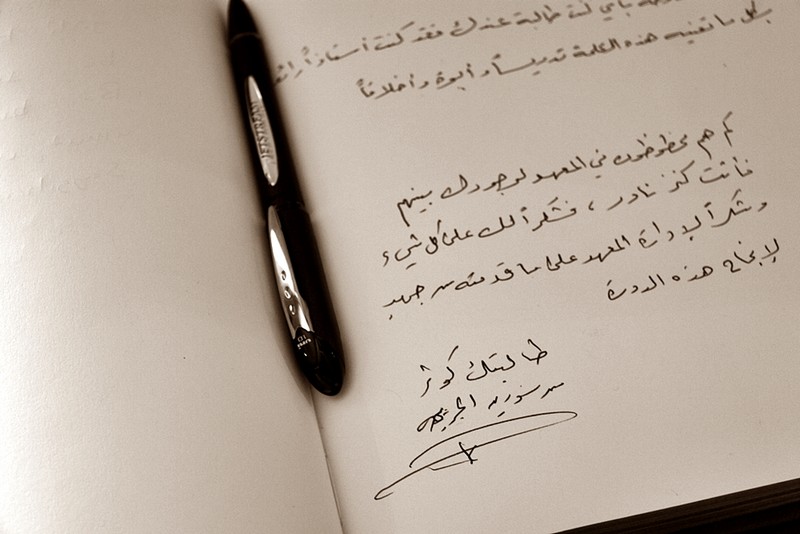 بأني كنت طالبة عندك فقد كنت أستاذاً رائ
بكل ما تعنيه هذه الكلمة تدريساً وأبوة وأخلاقاً
كم هم محظوظون في المعهد لوجودك بينهم
فأنت كنز نادر ، فشكراً لك على كل شيء
وشكراً لإدارة المعهد على ما قدمته من جهد
لإنجاح هذه الدورة
طالبتك كوثر
من سوريه الجريحه
JETSTREAM